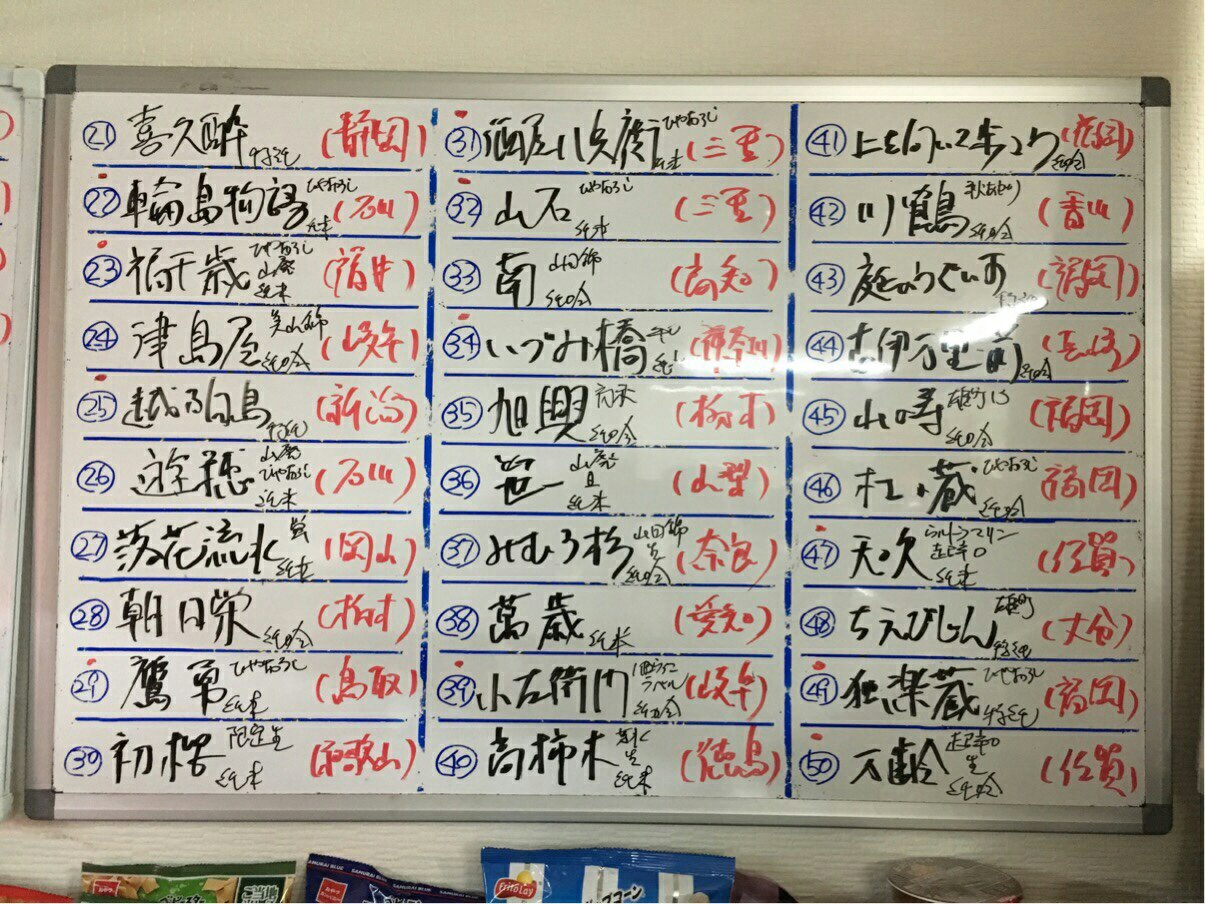 ㉑ 喜久酔 特純 (静岡)
㉒ 輪島物語 ひやおろし 純米 (石川)
㉓ 福千歳 ひやおろし 山廃 純米 (福井)
㉔ 津島屋 美山錦 純吟 (岐阜)
㉕ 越乃白鳥 特純 (新潟)
㉖ 遊穂 山廃 ひやおろし 純米 (石川)
㉗ 落花流水 純米 (岡山)
㉘ 朝日栄 純吟 (栃木)
㉙ 鷹勇 ひやおろし 純米 (鳥取)
㉚ 初桜 限定生 純米 (和歌山)
㉛ 酒屋八兵衛 ひやおろし 純米 (三重)
㉜ 山石 ひやおろし 純米 (三重)
㉝ 南 山田錦 純吟 (高知)
㉞ いづみ橋 (神奈川)
㉟ 旭興 純吟 (栃木)
㊱ 笹一 山廃 純米 (山梨)
㊲ みむろ杉 山田錦 純吟 (奈良)
㊳ 萬歳 純米 (愛知)
㊴ 小左衛門 純吟 (岐阜)
㊵ 高柿木 生 純米 (徳島)
㊶ 上を向いて歩こう 純吟
㊷ 川鶴 秋あがり 純吟 (香川)
㊸ 庭のうぐいす 特純 (福岡)
㊹ 古伊万里 前 純吟
㊺ 雄町 純吟 (福岡)
㊻ 杜の蔵 ひやおろし 純吟 (福岡)
㊼ 天吹 純米 (佐賀)
㊽ ちえびじん 雄町 特純 (大分)
㊾ 独楽蔵 ひやおろし 特純 (福岡)
㊿ 万齢 生 純吟 (佐賀)
SAMURAI BLUE SAMURAI BLUE
Frito Lay